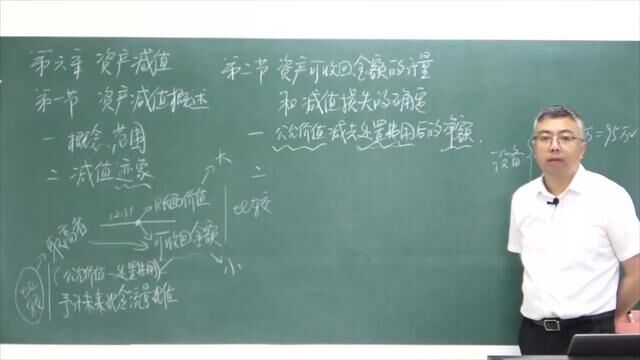 第六章 资产减值
第一节 资产减值概述
一 概念、范围
二 减值迹象
12.31
账面价值
可收回金额
大
小
比较
取高者
(公允价值-处置费用)
预计未来现金流量现值
比较
第二节 资产可收回金额的计量
和减值损失的确定
一 公允价值减去处置费用后的净额.
二
设备
=95万